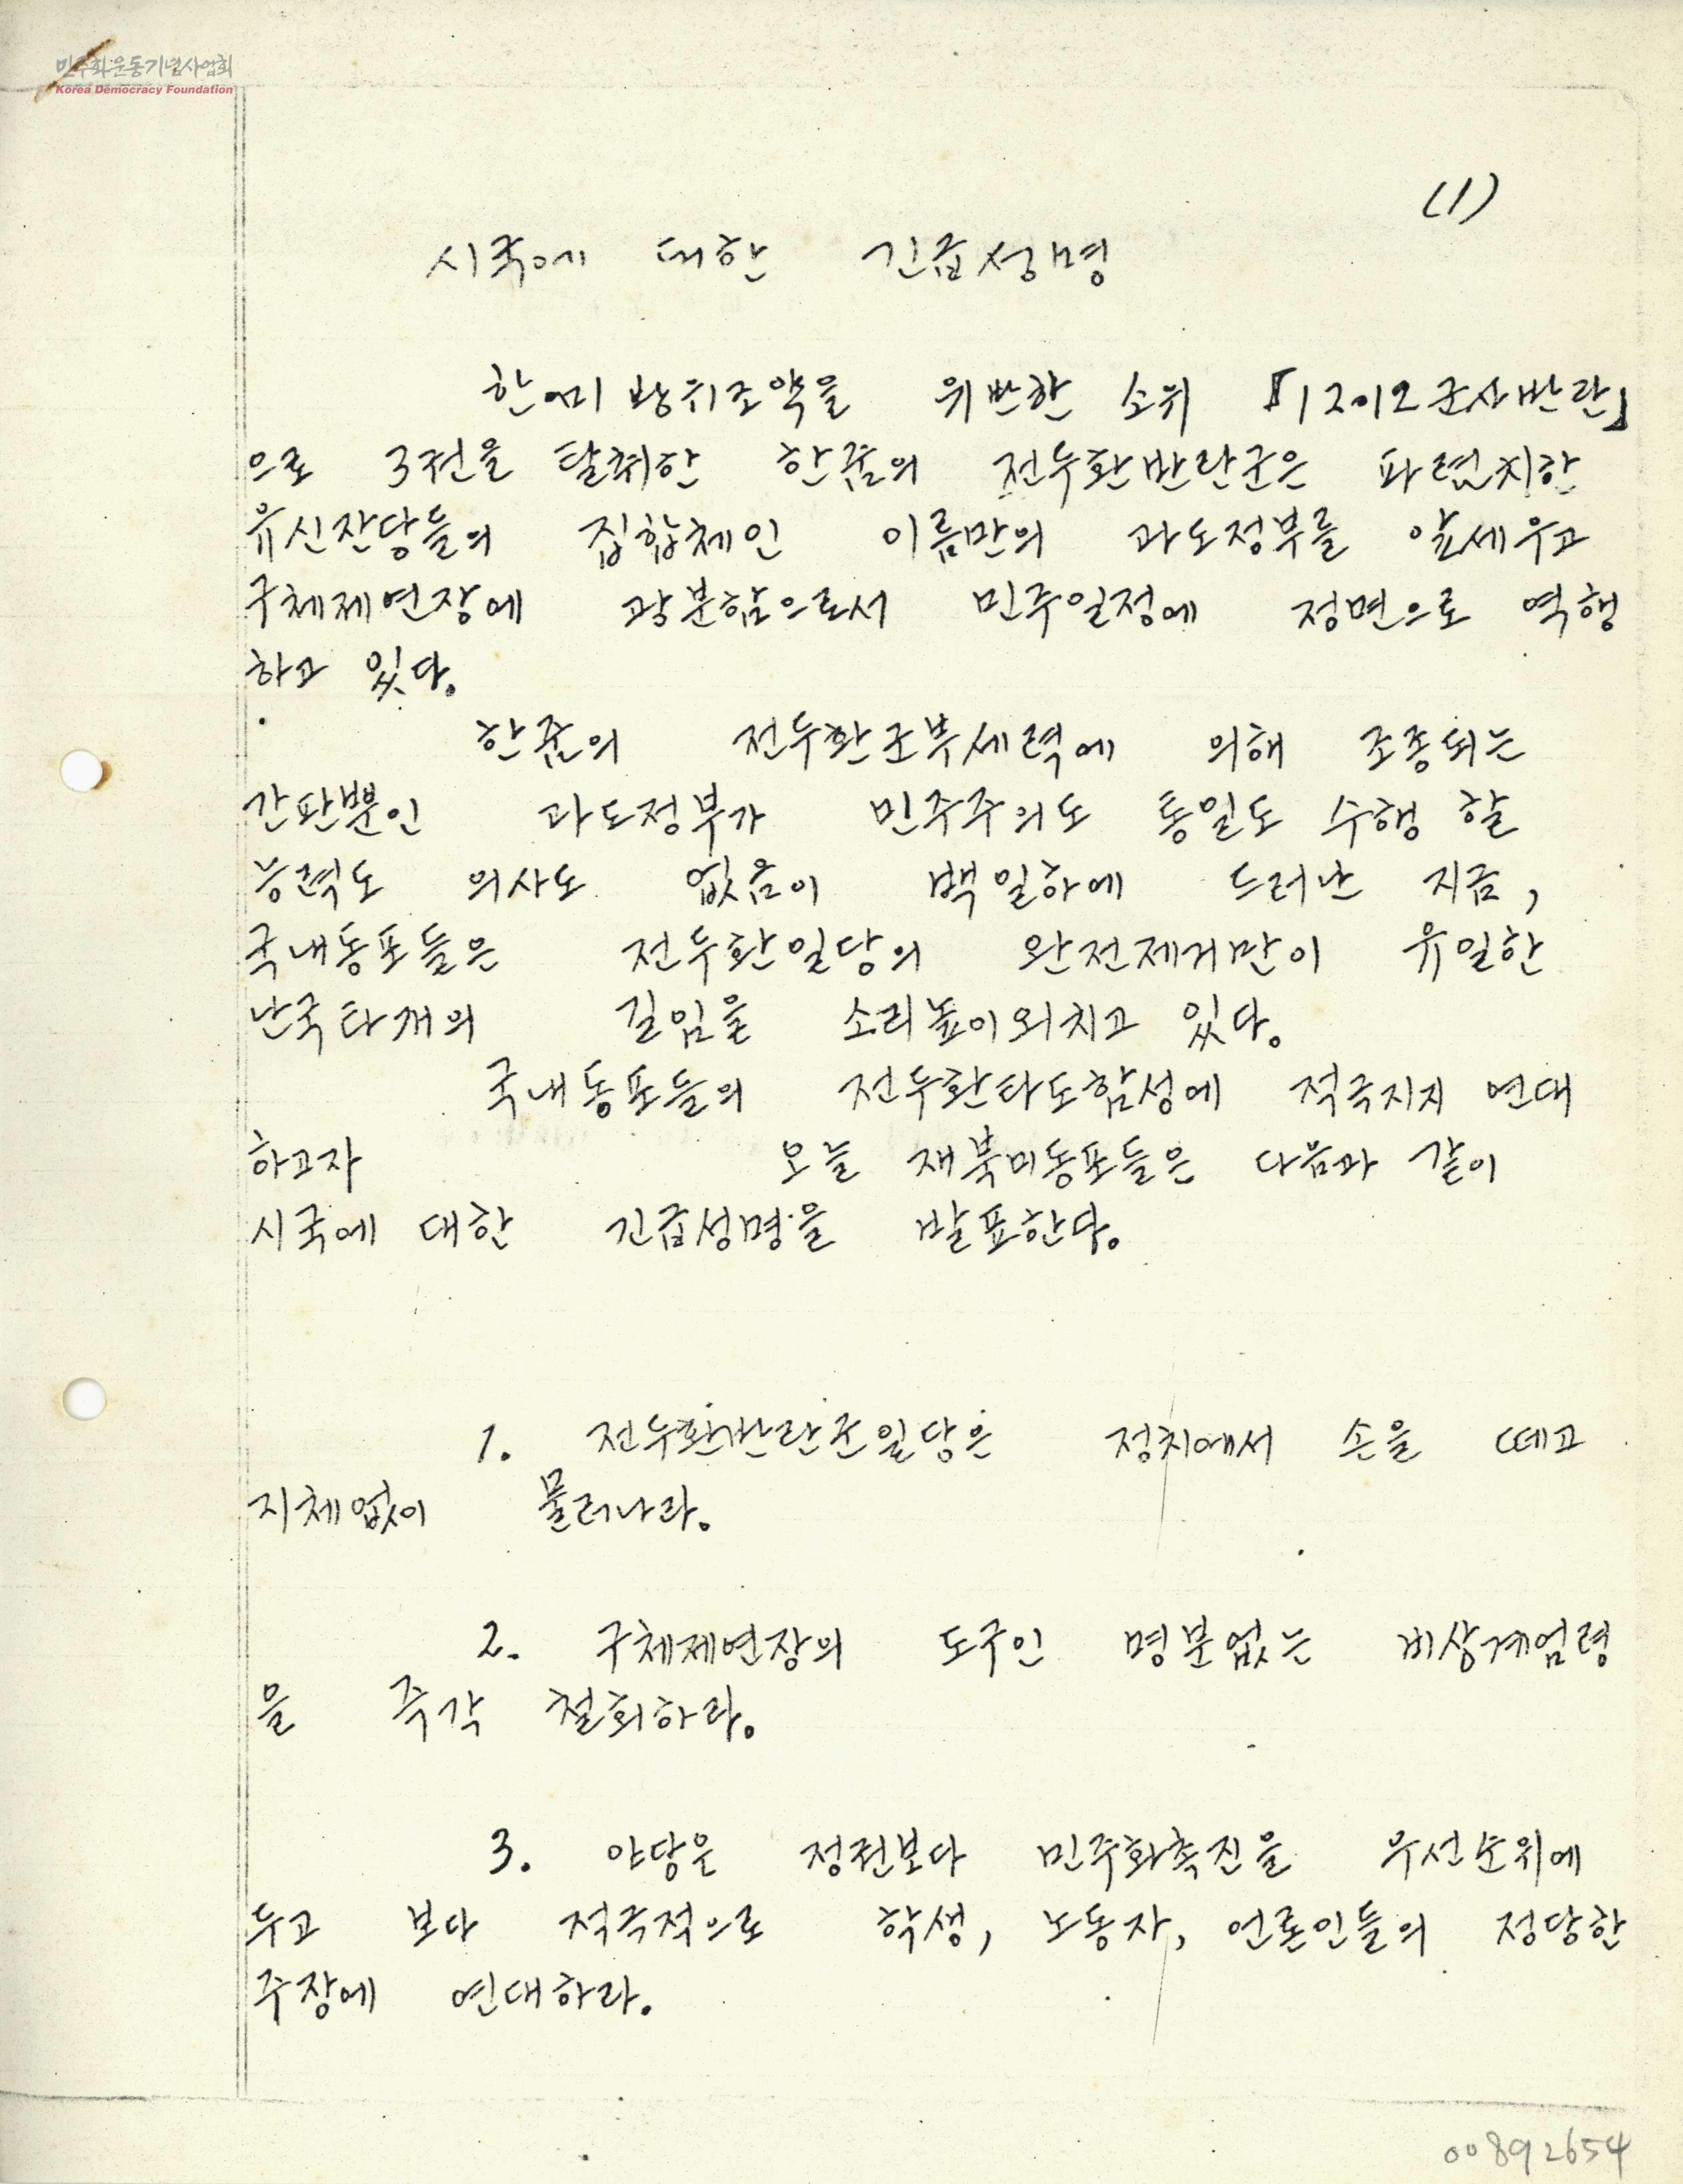 민주화운동기념사업회
Korea Democracy Foundation
(1)
시국에 대한 긴급성명
한미방위조약을 위반한 소위 『1212군사반란』
으로 3권을 탈취한 한줌의 전두환반란군은 파렴치한
유신잔당들의 집합체인 이름만의 과도정부를 앞세우고
구체제연장에 광분함으로서 민주일정에 정면으로 역행
하고 있다.
한줌의 전두환군부세력에 의해 조종되는
간판뿐인 과도정부가 민주주의도 통일도 수행 할
능력도 의사도 없음이 백일하에 드러난 지금,
국내동포들은 전두환일당의 완전제거만이 유일한
난국타개의 길임을 소리높이외치고 있다.
국내동포들의 전두환타도함성에 적극지지 연대
하고자 오늘 재북미동포들은 다음과 같이
시국에 대한 긴급성명을 발표한다.
1. 전두환반란군일당은 정치에서 손을 떼고
지체없이 물러나라.
2. 구체제연장의 도구인 명분없는 비상계엄령
을 즉각 철회하라.
3. 야당은 정권보다 민주화촉진을 우선순위에
두고 보다 적극적으로 학생, 노동자, 언론인들의 정당한
주장에 연대하라.
00892654